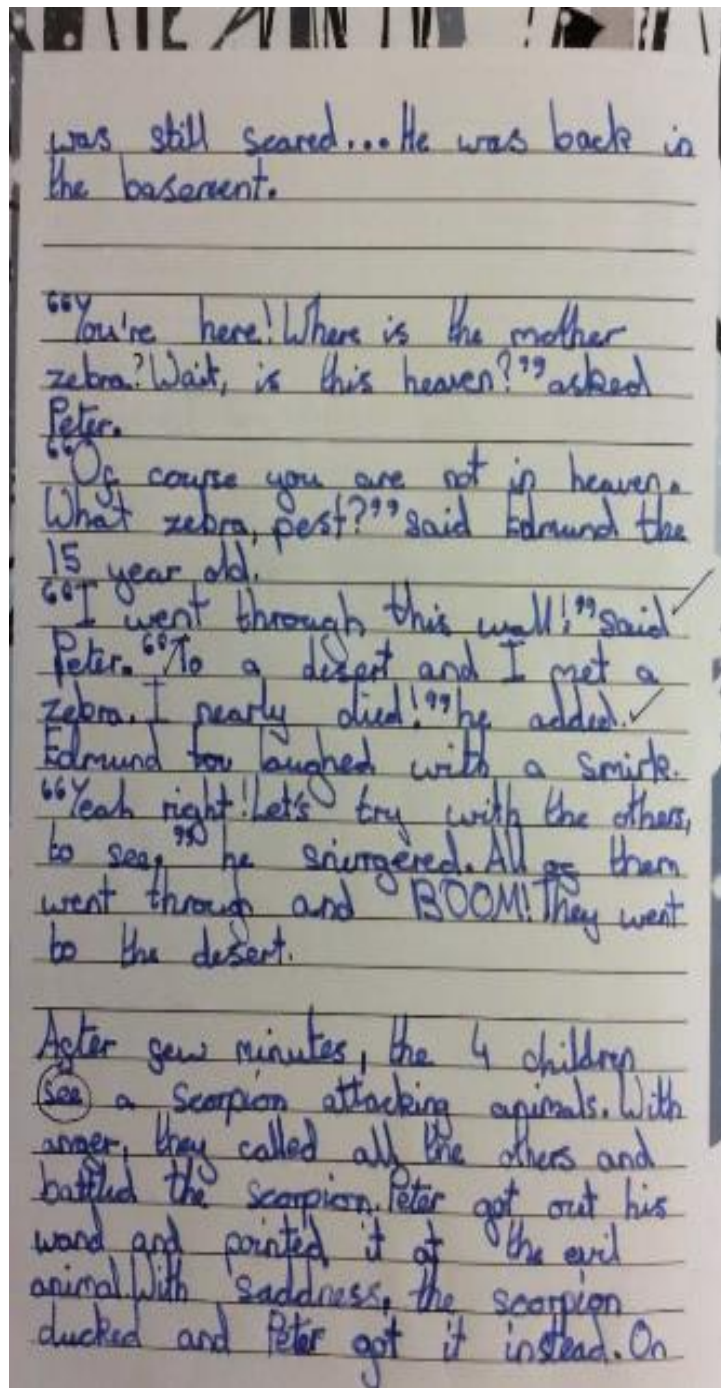 was still scared... He was back in
the basement.
“You're here! Where is the mother
zebra? Wait, is this heaven?” asked
Peter.
“Of course you are not in heaven.
What zebra, pest?” said Edmund the
15 year old.
“I went through this wall!” said
Peter. “To a desert and I met a
zebra. I nearly died!” he added.
Edmund laughed with a smirk.
“Yeah right! Let's try with the others,
to see,” he snurgered. All of them
went through and BOOM! They went
to the desert.
After few minutes, the 4 children
see a scorpion attacking animals. With
anger, they called all the others and
battled the scorpion. Peter got out his
wand and pointed it at the evil
animal. With saddness, the scorpion
ducked and Peter got it instead. On